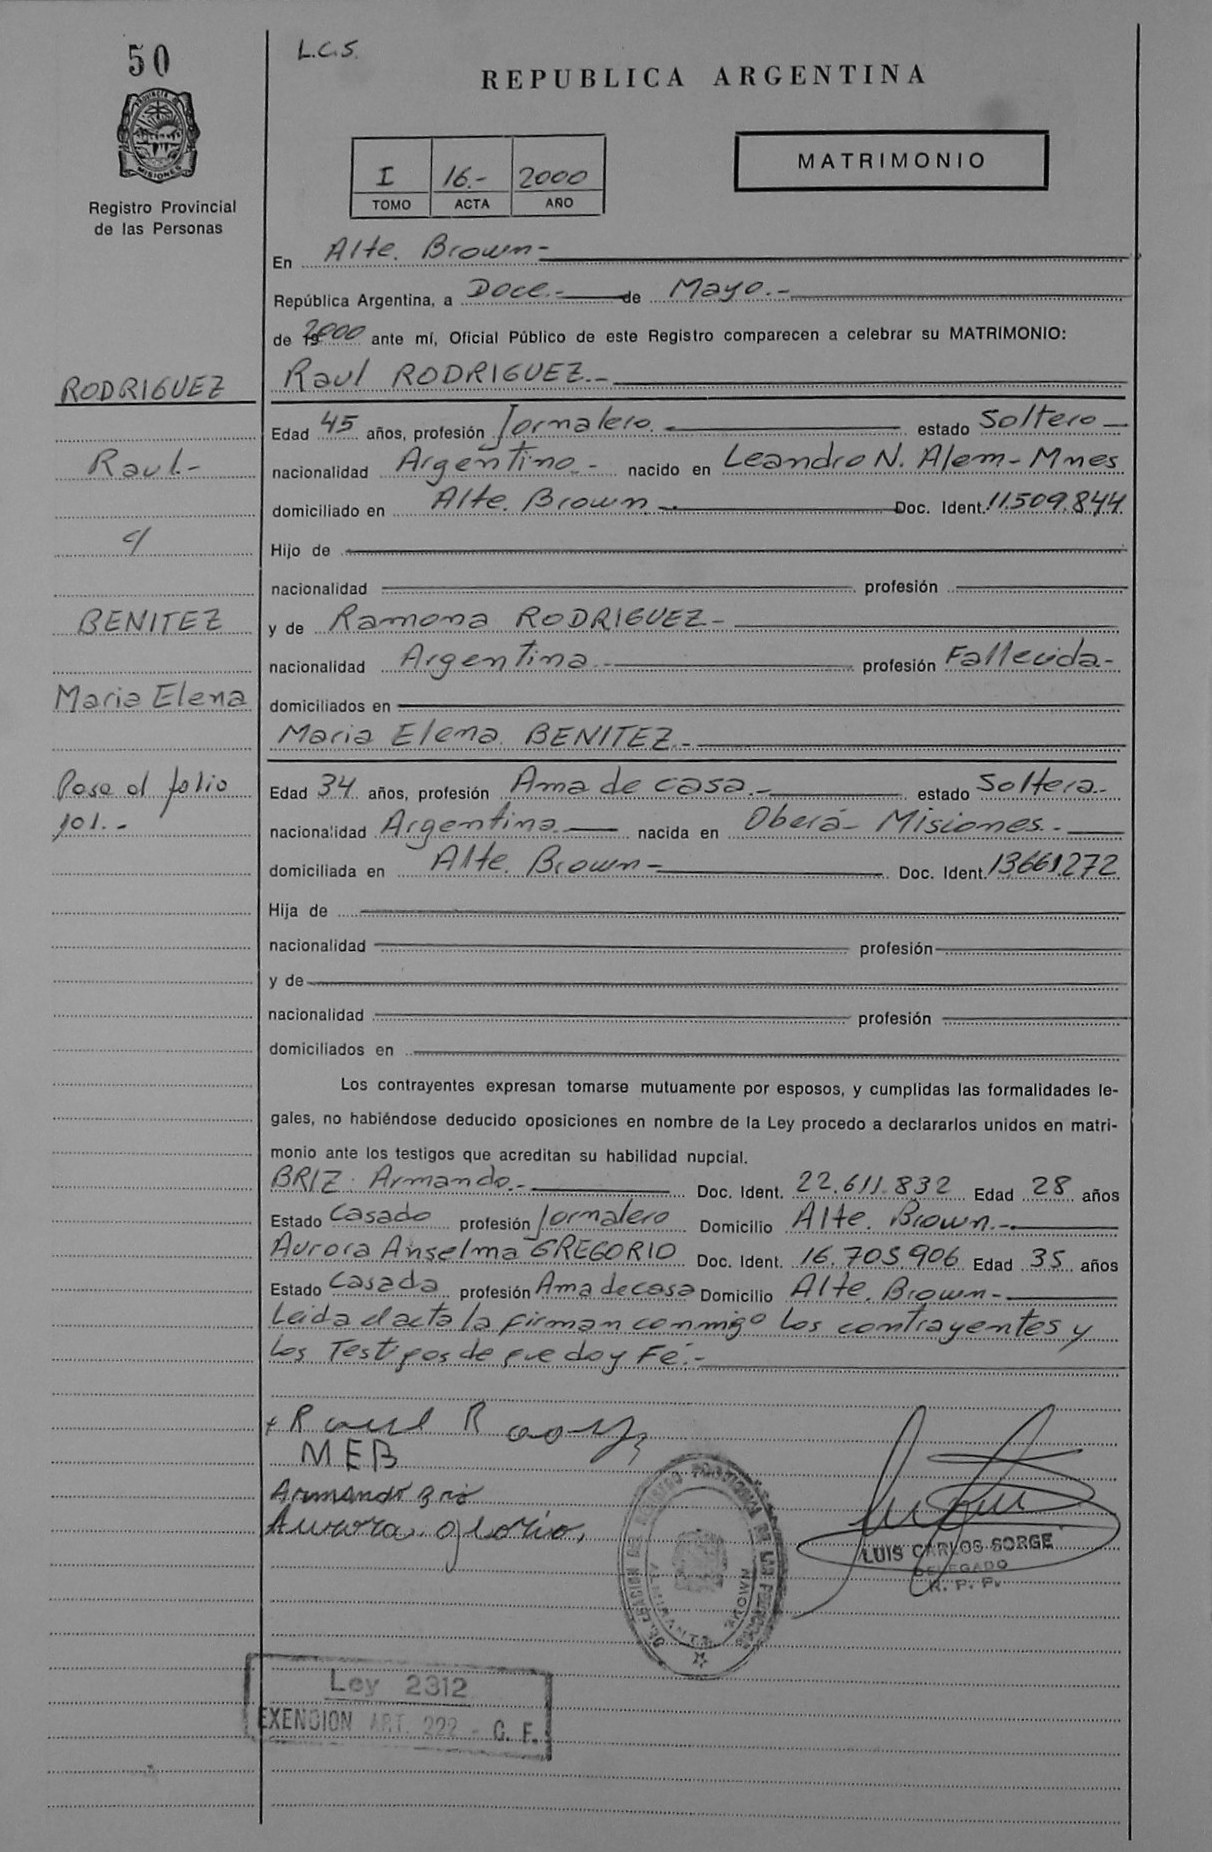 50
L.C.S.
REPUBLICA ARGENTINA
PROVINCIA DE
MISIONES
MATRIMONIO
I 16.- 2000
TOMO ACTA AÑO
Registro Provincial
de las Personas
En Alte. Brown-
República Argentina, a Doce.- de Mayo.-
de 2000 ante mí, Oficial Público de este Registro comparecen a celebrar su MATRIMONIO:
RODRIGUEZ
Raul RODRIGUEZ.-
Edad 45 años, profesión Jornalero. estado Soltero
Raul.-
nacionalidad Argentino- nacido en Leandro N. Alem-Mnes
domiciliado en Alte. Brown-. Doc. Ident. 11.509.844
c/
Hijo de
nacionalidad profesión
BENITEZ
y de Ramona RODRIGUEZ-
nacionalidad Argentina.- profesión Fallecida-
Maria Elena
domiciliados en
Maria Elena BENITEZ.-
Pasa al folio
Edad 34 años, profesión Ama de casa.- estado Soltera.-
101.-
nacionalidad Argentina nacida en Oberá- Misiones.-
domiciliada en Alte. Brown- Doc. Ident. 13661.272
Hija de
nacionalidad profesión
y de
nacionalidad profesión
domiciliados en
Los contrayentes expresan tomarse mutuamente por esposos, y cumplidas las formalidades le-
gales, no habiéndose deducido oposiciones en nombre de la Ley procedo a declararlos unidos en matri-
monio ante los testigos que acreditan su habilidad nupcial.
BRIZ Armando.- Doc. Ident. 22.611.832 Edad 28 años
Estado Casado profesión Jornalero Domicilio Alte. Brown.-
Aurora Anselma GREGORIO Doc. Ident. 16.705.906 Edad 35 años
Estado Casada profesión Ama de casa Domicilio Alte. Brown-
Leida el acta la firman conmigo los contrayentes y
los Testigos de que doy Fé.-
Raul
MEB
Armando
Aurora
LUIS CARLOS SORGE
DELEGADO
R. P. P.
Ley 2312
EXENCION ART. 222 - C. F.